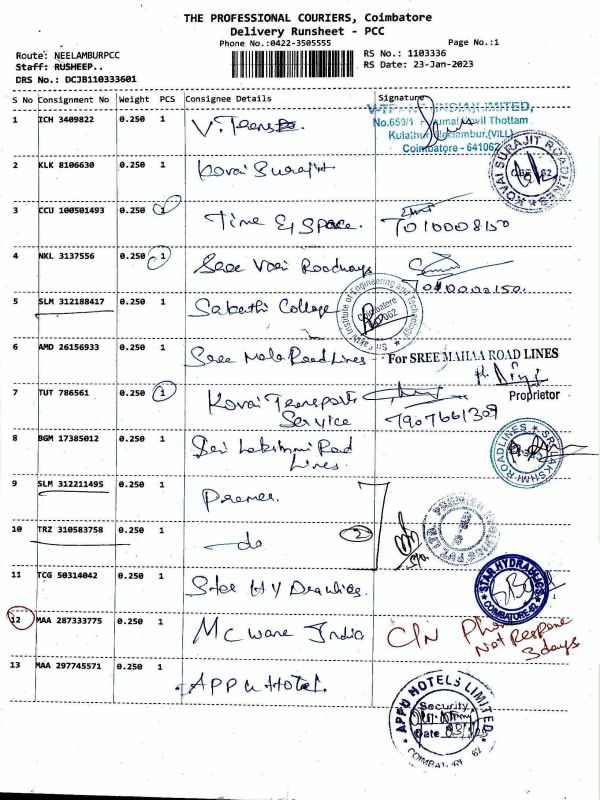 THE PROFESSIONAL COURIERS, Coimbatore
Delivery Runsheet - PCC
Phone No.:0422-3505555
Page No.:1
Route: NEELAMBURPCC
RS No.: 1103336
Staff: RUSHEEP..
RS Date: 23-Jan-2023
DRS No.: DCJB110333601
S No Consignment No Weight PCS Consignee Details Signature
1 ICH 3409822 0.250 1 V. Trans
INDIA LIMITED,
No.659/1 Thottam
Kulathur, Neelambur,(VILL)
Coimbatore - 641062
2 KLK 8106630 0.250 1 Kovai Surajit
KOVAI SURAJIT ROADLINES
3 CCU 100501493 0.250 1 Time & Space. 7010008150
4 NKL 3137556 0.250 1 Sree Vari Roadways
5 SLM 312188417 0.250 1 Sabathi College
Institute of Engineering and Technology
Coimbatore
6 AMD 26156933 0.250 1 Sree Maha Road Lines
For SREE MAHAA ROAD LINES
Proprietor
7 TUT 786561 0.250 1 Kovai Transports
Service
7907661309
8 BGM 17385012 0.250 1 Sri Lakshmi Road
Lines.
SRI LAKSHMI ROADLINES
9 SLM 312211495 0.250 1 Premier.
10 TRZ 310583758 0.250 1 do 2
11 TCG 50314042 0.250 1 Star Hydraulics.
STAR HYDRAULICS
COIMBATORE-62
12 MAA 287333775 0.250 1 Mcware India
C/N Phone
Not Response
3days
13 MAA 297745571 0.250 1 APPU Hotel.
APPU HOTELS LIMITED
Security
Date